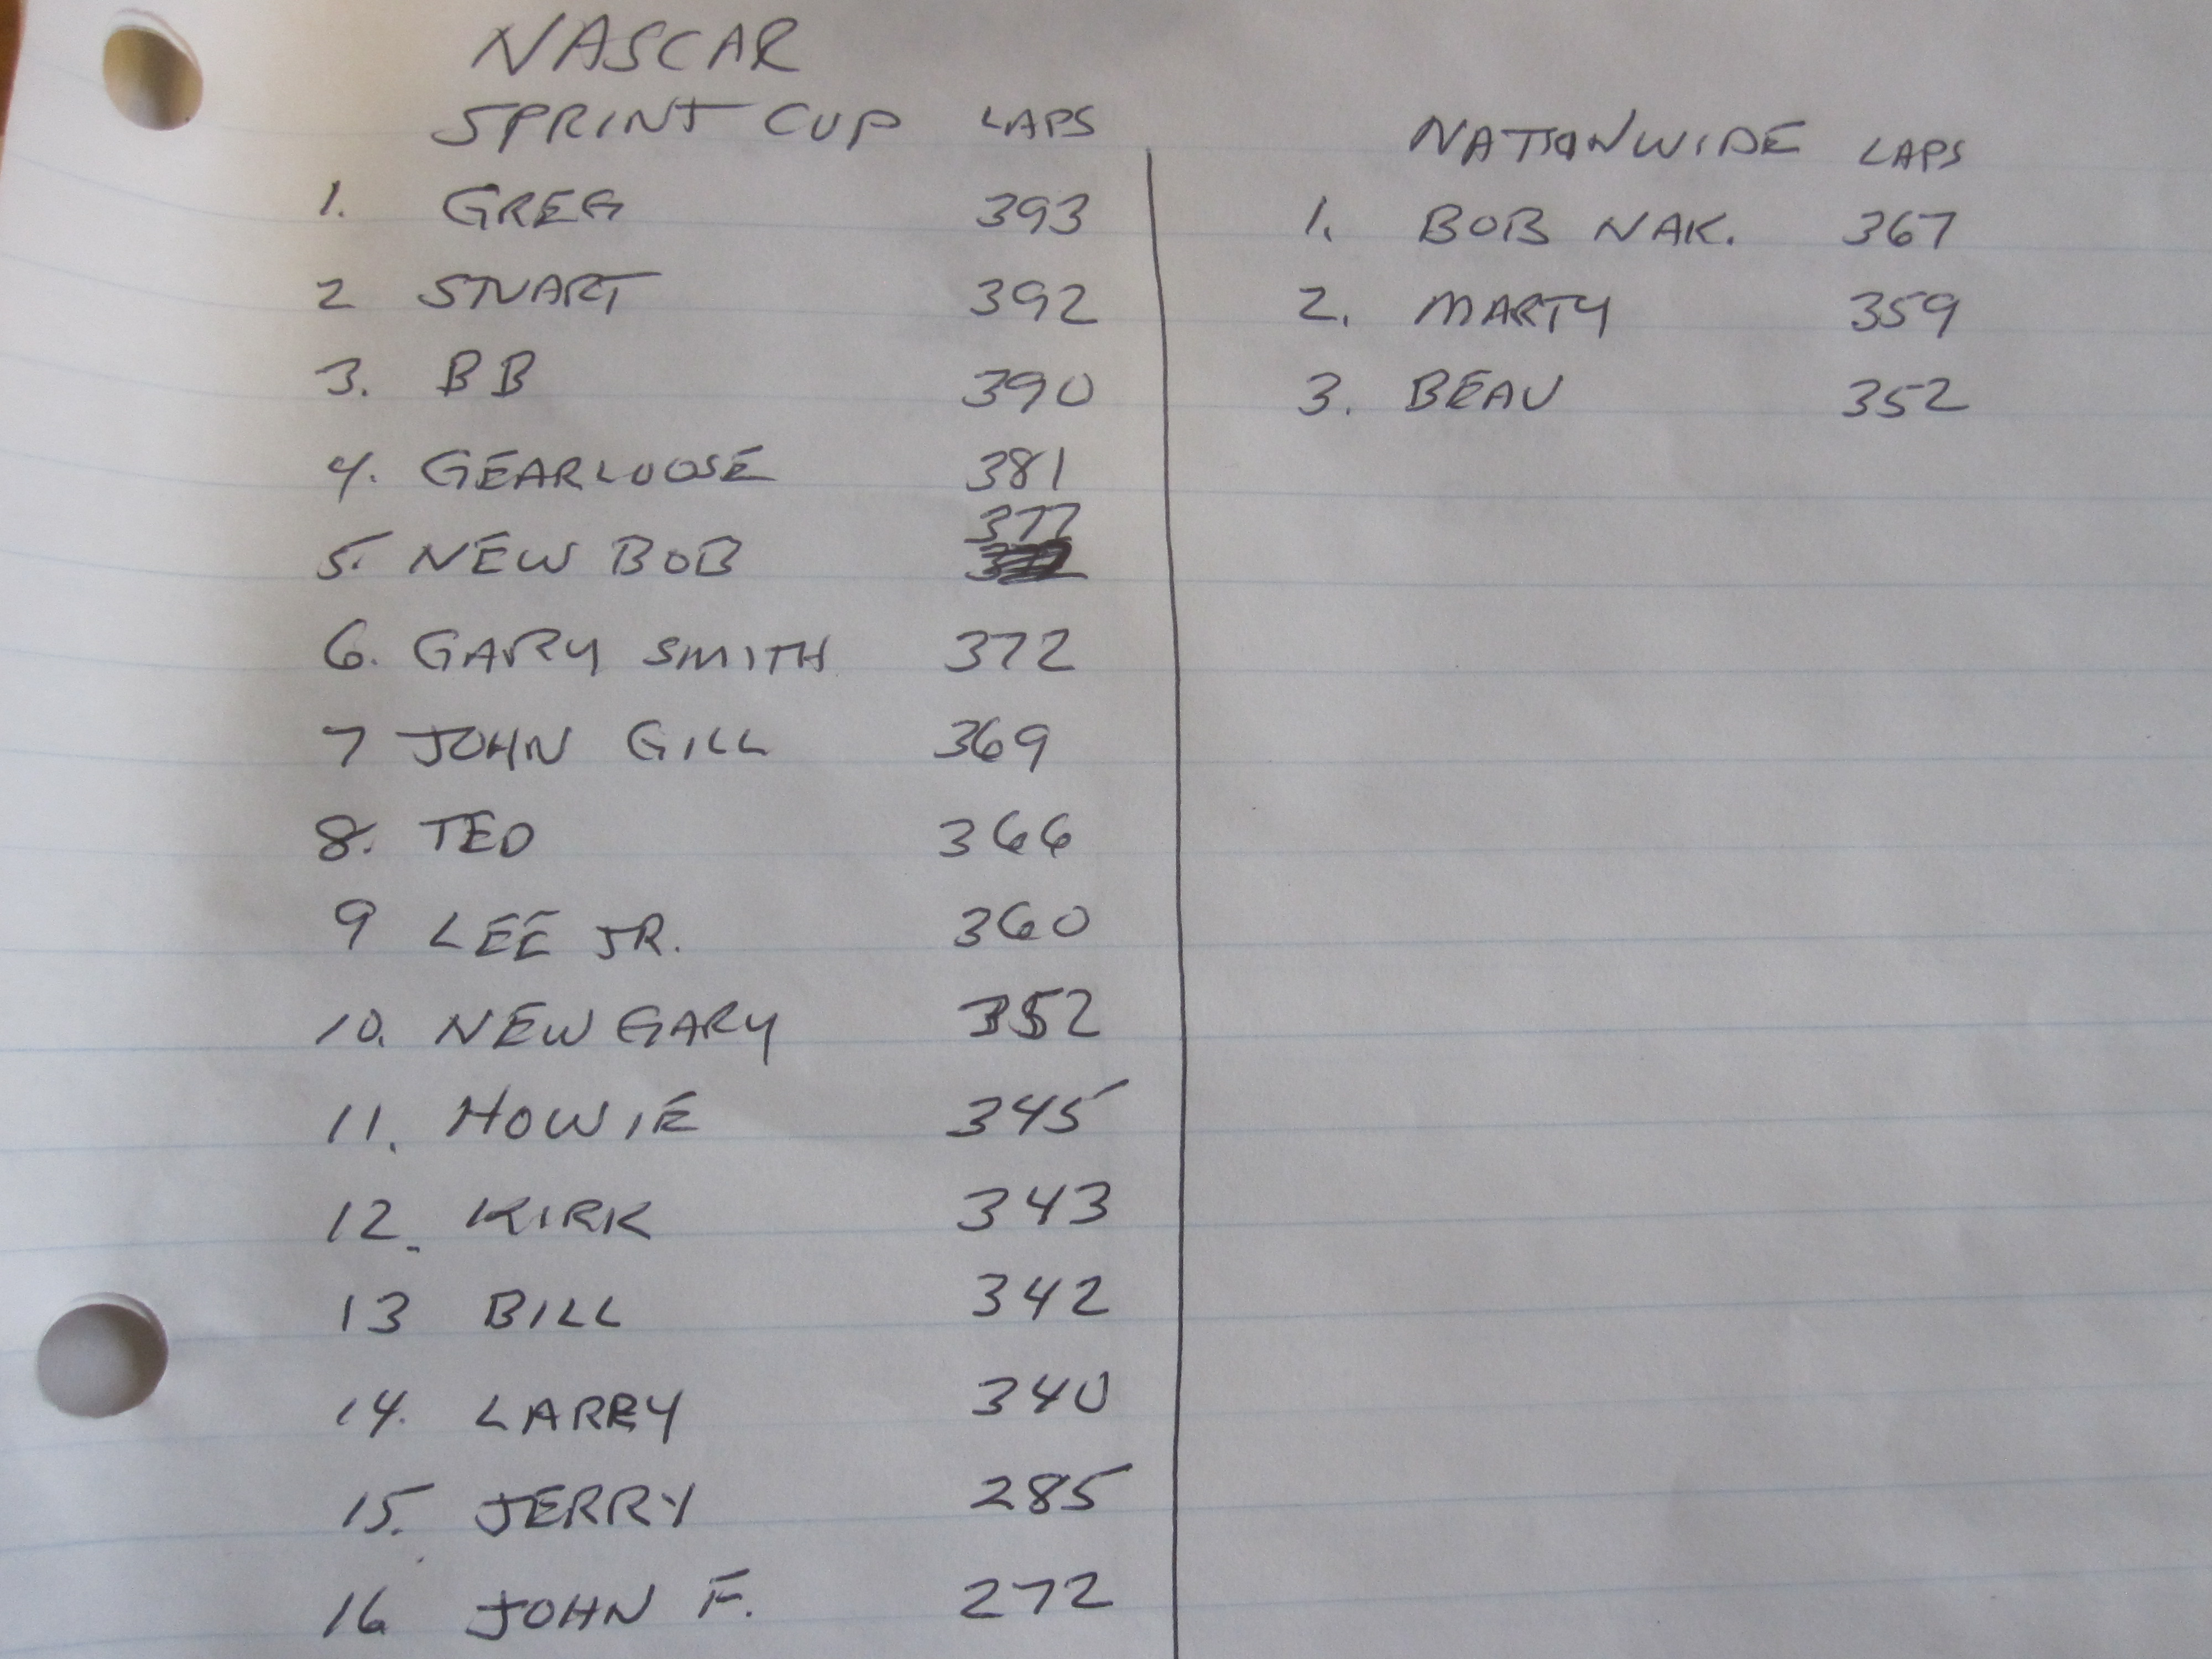 NASCAR
SPRINT CUP LAPS
1. GREG 393
2 STUART 392
3. BB 390
4. GEARLOOSE 381
377
5. NEW BOB
6. GARY SMITH 372
7 JOHN GILL 369
8. TED 366
9 LEE JR. 360
10. NEW GARY 352
11. HOWIE 345
12. KIRK 343
13 BILL 342
14. LARRY 340
15. JERRY 285
16 JOHN F. 272
NATIONWIDE LAPS
1. BOB NAK. 367
2. MARTY 359
3. BEAU 352